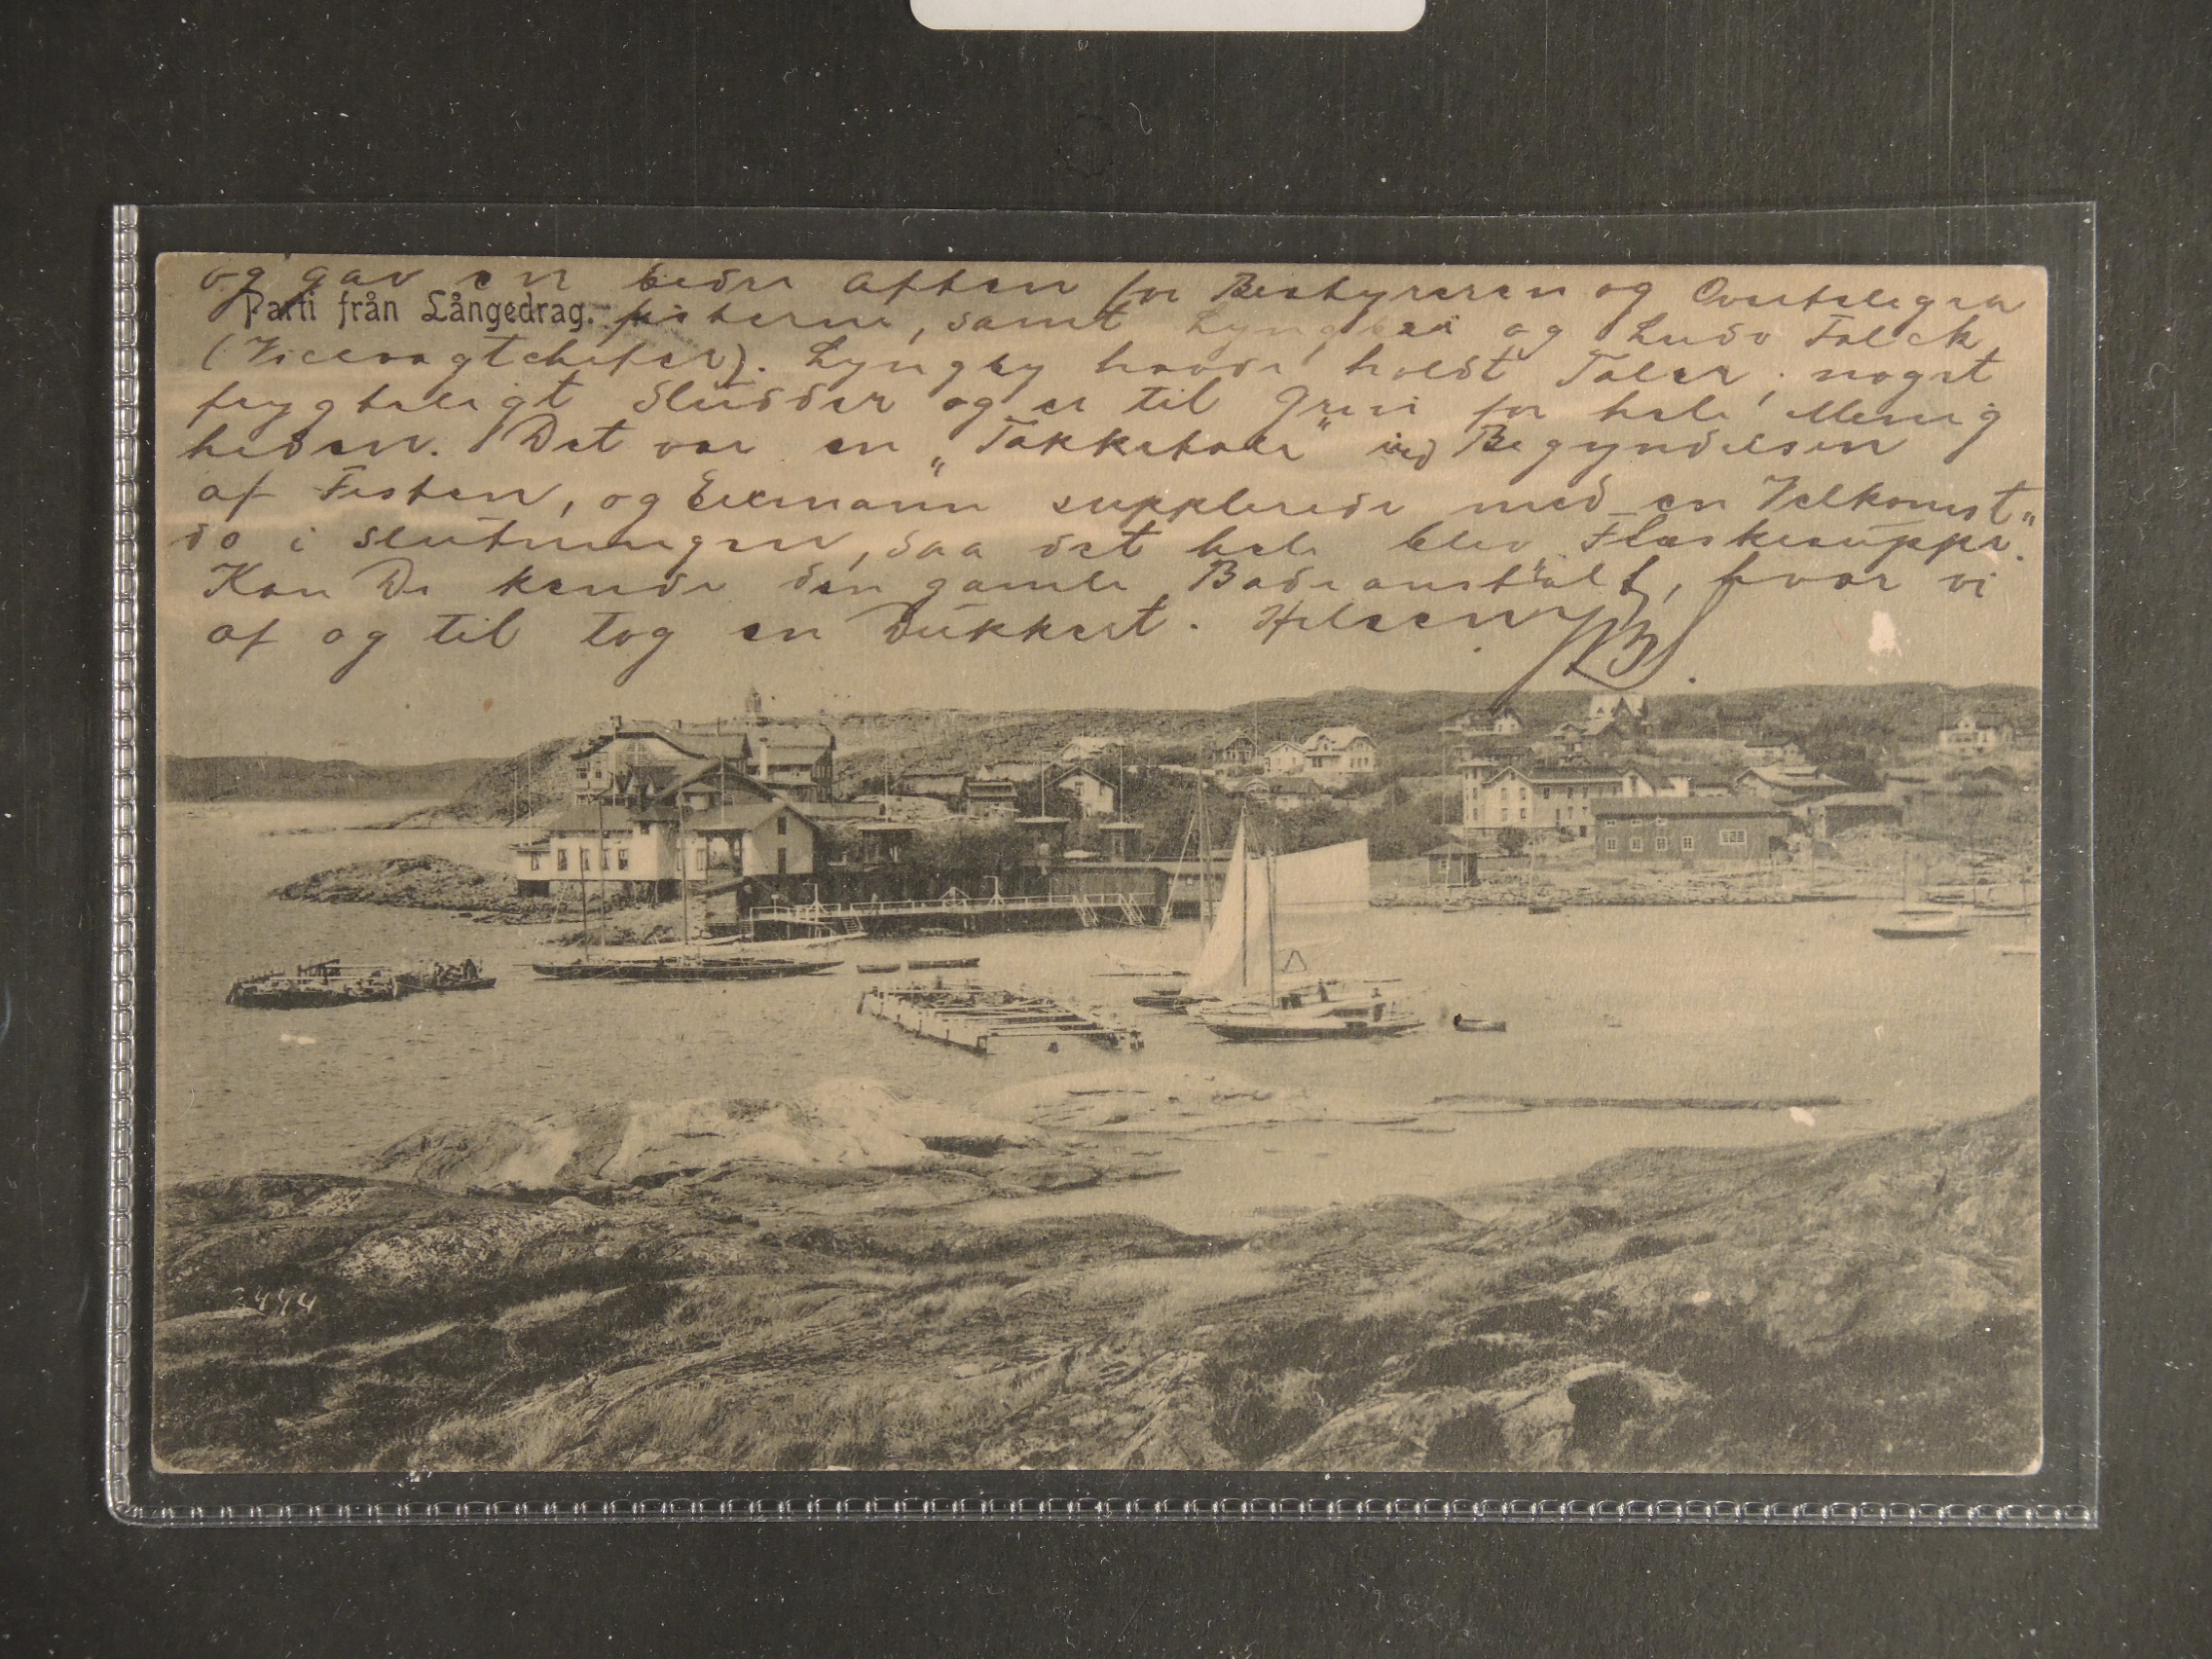 og gav en bedre Aften for Bestyreren og Overtelegra
Parti från Långedrag.
fisterne, samt Lyngbei og Ludv Falck
(Vicevagtchefer). Lyngby havde holdt Taler, noget
frygteligt Sludder og er til Grin for hele Menig
heden. Det var en „Takketale" ved Begyndelsen
af Festen, og Eexmann supplerede med en Velkomst„
do i Slutningen, saa det hele blev Flæskesuppe.
Kan De kende den gamle Badeanstalt, hvor vi
af og til tog en Dukkert. Hilsen
2444